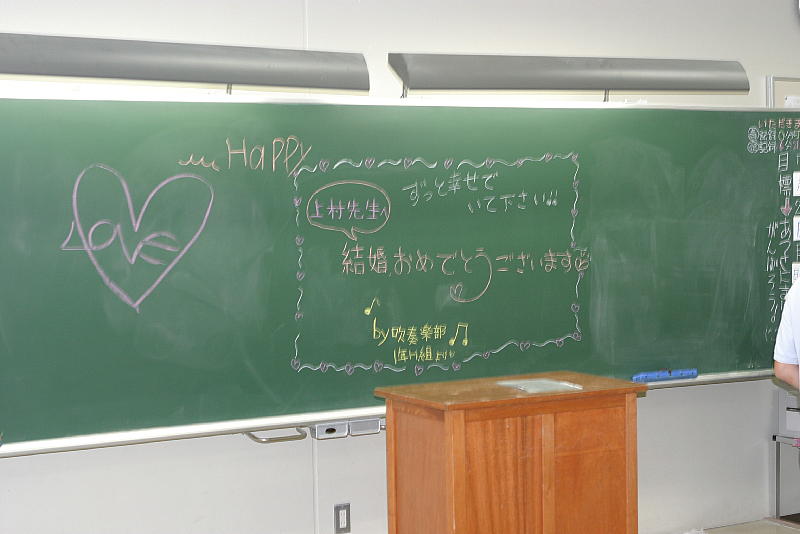 Love
Happy
上村先生へ
ずっと幸せで
いて下さい!!
結婚おめでとうございます
by 吹奏楽部
1年H組より
いただきま
目標
がんばろう